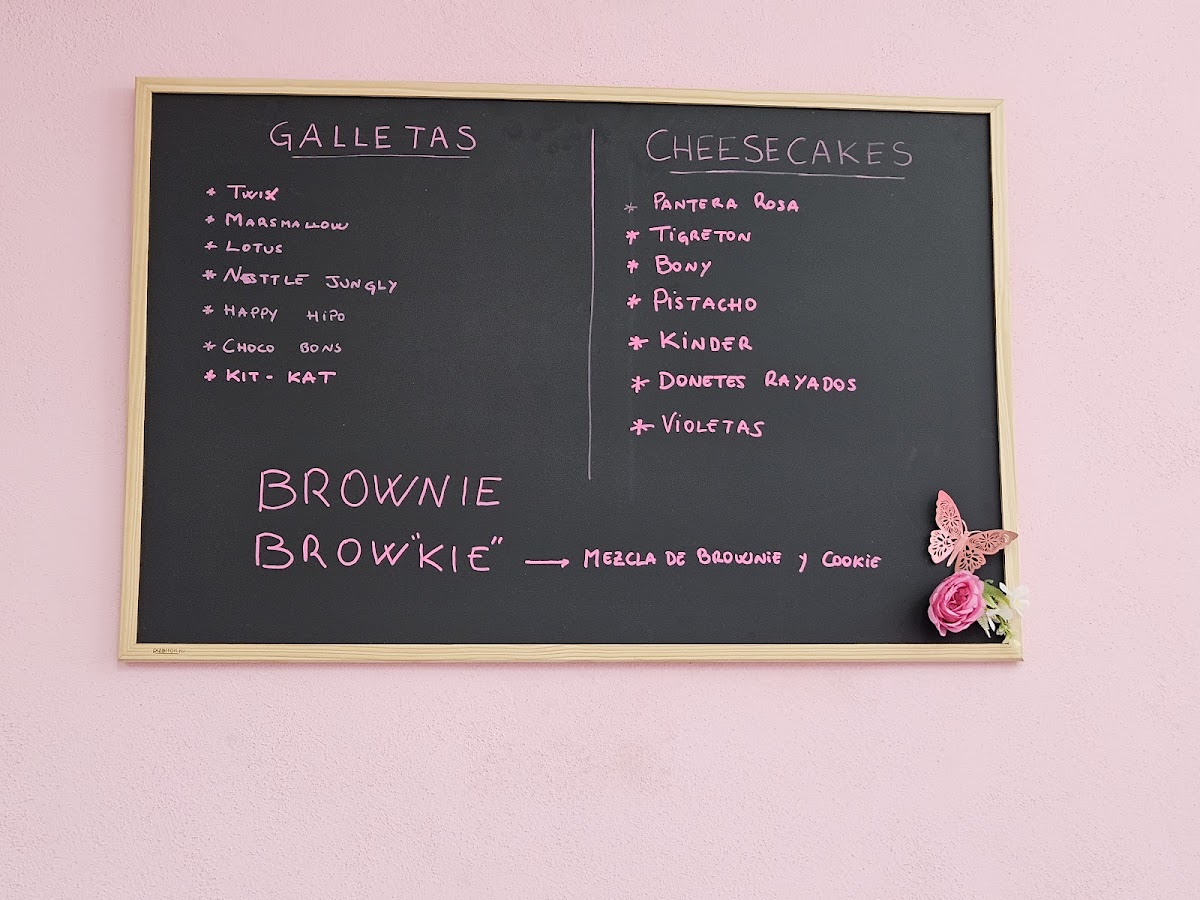 GALLETAS
* TWIX
* MARSMALLOW
* LOTUS
* NESTTLE JUNGLY
* HAPPY HIPO
* CHOCO BONS
* KIT - KAT
CHEESECAKES
* PANTERA ROSA
* TIGRETON
* BONY
* PISTACHO
* KINDER
* DONETES RAYADOS
* VIOLETAS
BROWNIE
BROW"KIE" → MEZCLA DE BROWNIE Y COOKIE